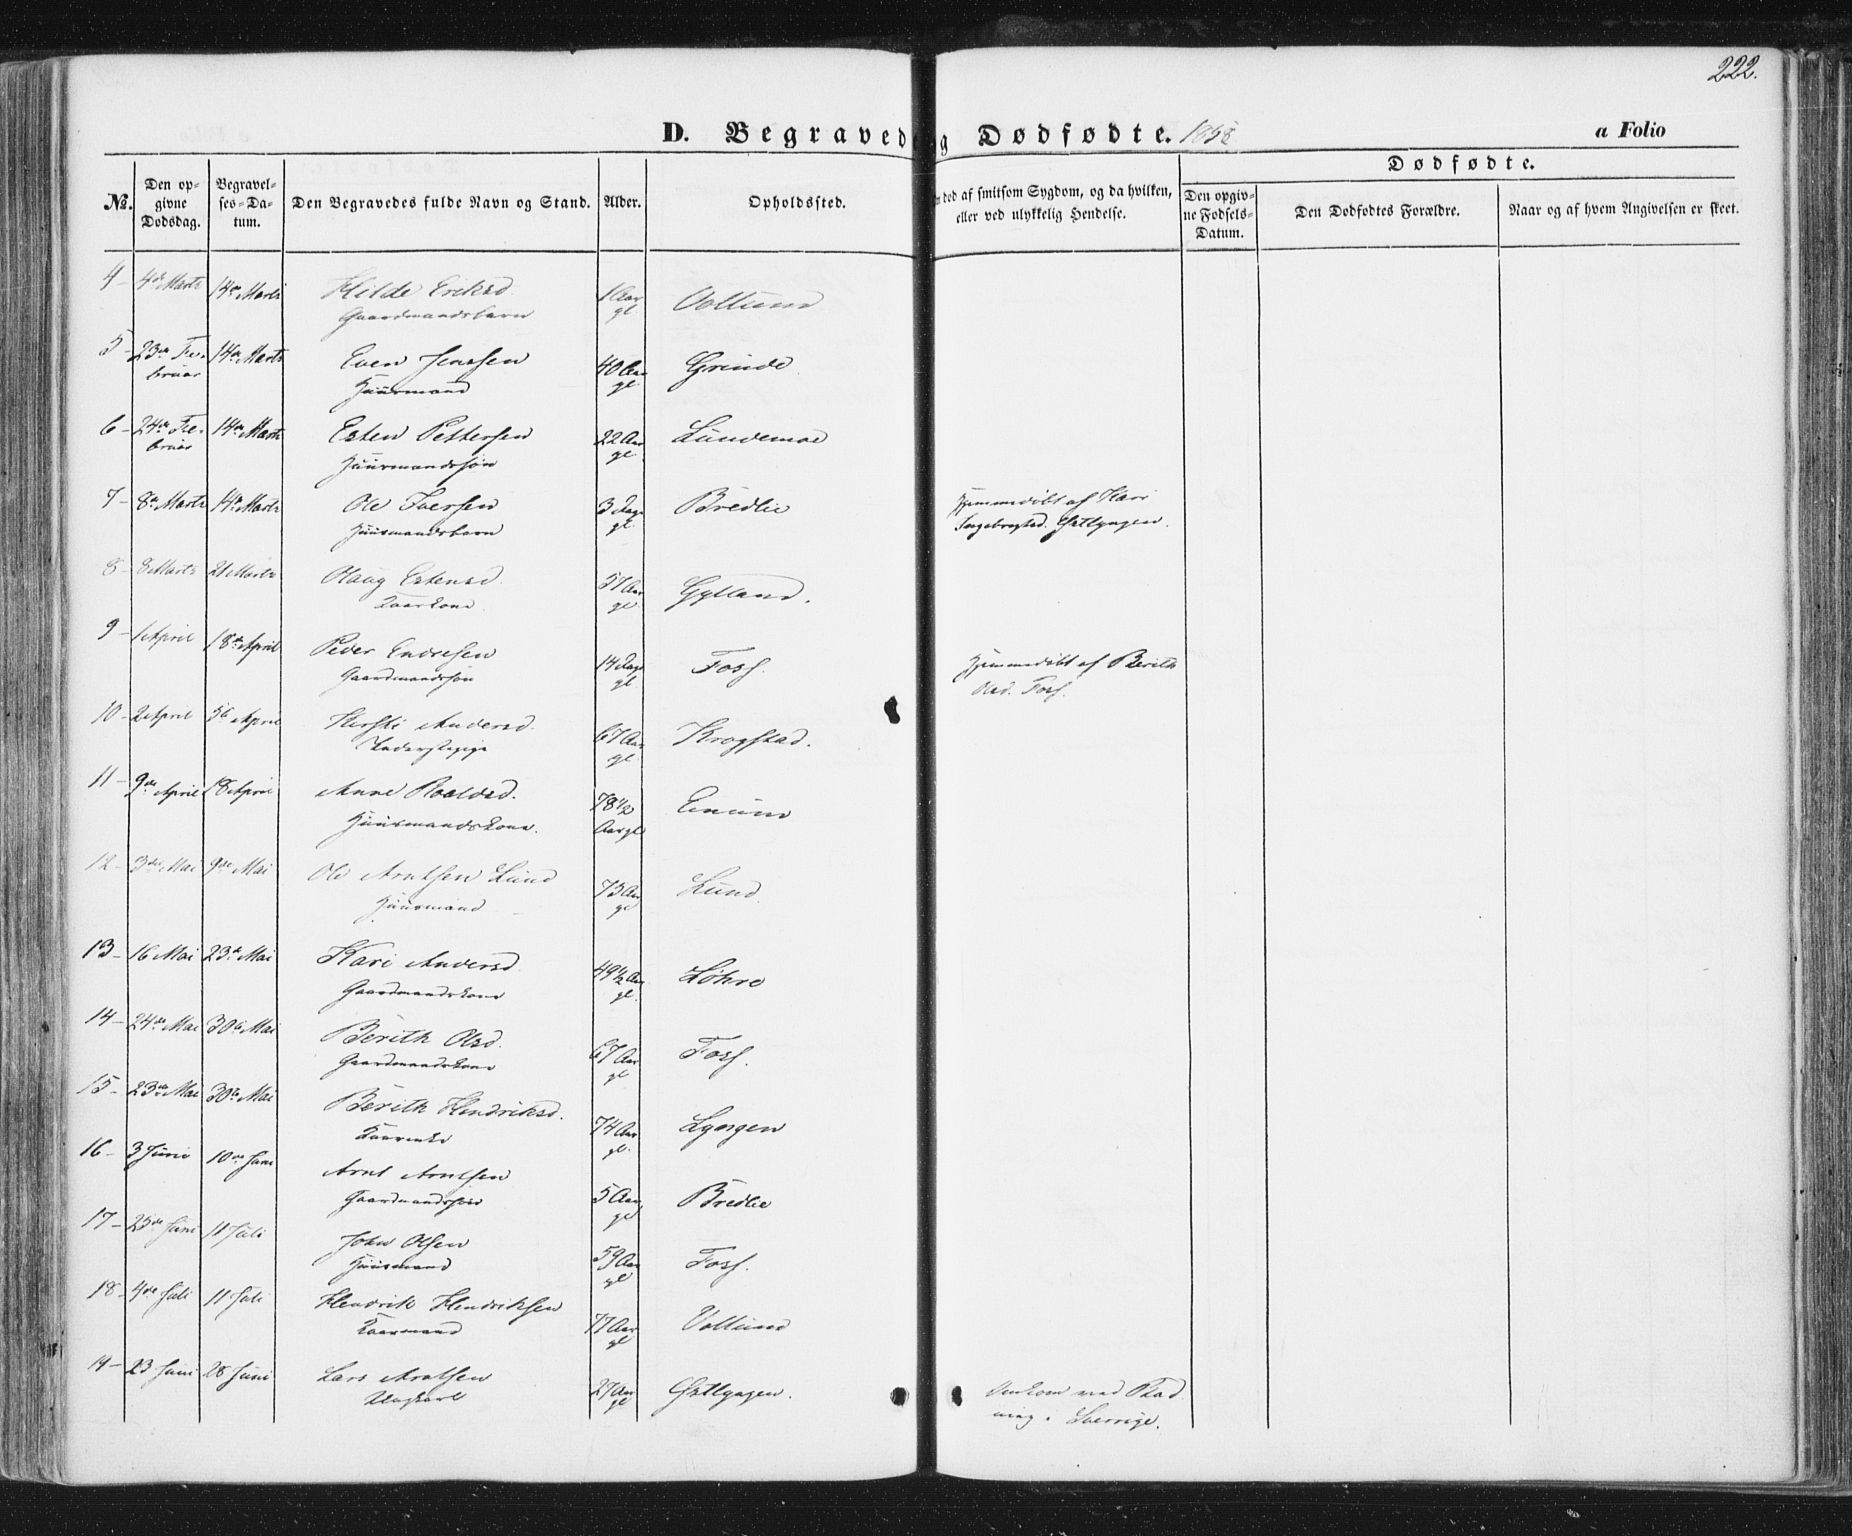 222.
D. Begravede og Dødfødte. 1858
a Folio
No.
Den opgivne Dødsdag.
Begravelses-Datum.
Den Begravedes fulde Navn og Stand.
Alder.
Opholdssted.
død af smitsom Sygdom, og da hvilken, eller ved ulykkelig Hendelse.
Dødfødte.
Den opgivne Fødsels-Datum.
Den Dødfødtes Forældre.
Naar og af hvem Angivelsen er skeet.
4 - 4de Marts 14de Marts Hilde Eriksd. 1 Aar Vollum
Gaardmandsbarn gl
5 - 23de Fe- 14de Marts Even Jensen 40 Aar Grinde
bruar Huusmand gl.
6 - 24de Fe- 14de Marts Esten Pettersen 22 Aar Lundemoe
bruar Huusmandssøn gl.
7 - 8de Marts 14de Marts Ole Iversen 3 Dage Bredlie Hjemmedøbt af Kari
Huusmandsbarn gl. Ingebrigtsd. Østlyngen.
8 - 8 Marts 21 Marts Olaug Estensd. 57 Aar Gylland.
Kaarkone. gl
9 - 1 April 18de April Peder Endresen 14 Dage Foss. Hjemmedøbt af Berith
Gaardmandssøn gl Olsd. Foss.
10 - 2 April 5te April Kirsti Andersd. 67 Aar Krogstad.
gl.
11 - 9de April 18 April Anne Roaldsd. 78 1/2 Enum
Huusmandskone. Aar gl
12 - 3die Mai 9de Mai Ole Arntsen Lund 73 Aar Lund.
Huusmand gl
13 - 16 Mai 23de Mai Kari Andersd. 49 1/2 Aar Løhre
Gaardmandskone gl.
14 - 24de Mai 30te Mai Berith Olsd. 67 Aar Foss.
Gaardmandskone gl
15 - 23de Mai 30te Mai Berith Hendriksd. 74 Aar Lyngen
Kaarenke gl.
16 - 3 Juni 10de Juni Arnt Arntsen 5 Aar Bredlie
Gaardmandssøn gl
17 - 25de Juni 11 Juli John Olsen 59 Aar Foss.
Huusmand gl
18 - 4de Juli 11 Juli Hendrik Hendriksen 77 Aar Vollum
Kaarmand gl
19 - 23 Juni 28 Juni Lars Arntsen 27 Aar Østlyngen. Omkom ved
Ungkarl gl i Sverrige.